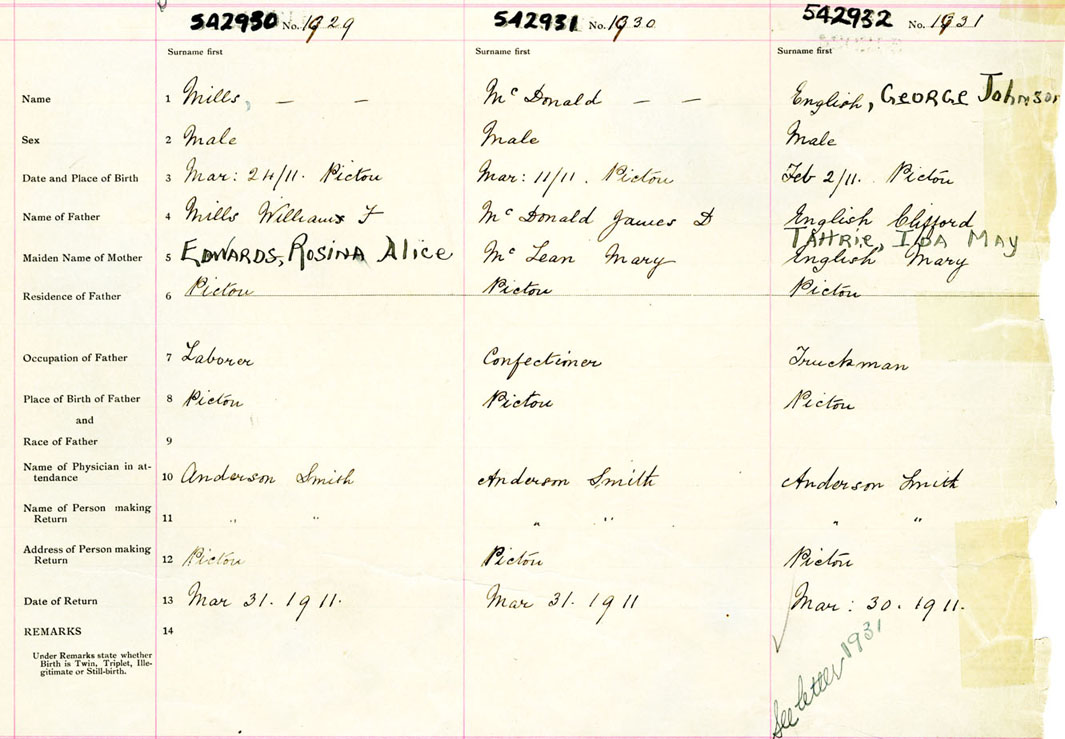 542930 No. 1929 542931 No. 1930 542932 No. 1931
Surname first Surname first Surname first
Name 1 Mills, — — Mc Donald — — English, GEORGE Johnson
Sex 2 Male Male Male
Date and Place of Birth 3 Mar: 24/11. Pictou Mar: 11/11. Pictou Feb 2/11. Pictou
Name of Father 4 Mills William F Mc Donald James D English Clifford
TAHRIE, IDA MAY
Maiden Name of Mother 5 EDWARDS, ROSINA Alice Mc Lean Mary English Mary
Residence of Father 6 Pictou Pictou Pictou
Occupation of Father 7 Laborer Confectioner Truckman
Place of Birth of Father 8 Pictou Pictou Pictou
and
Race of Father 9
Name of Physician in at-
tendance 10 Anderson Smith Anderson Smith Anderson Smith
Name of Person making
Return 11 " " " " " "
Address of Person making
Return 12 Pictou Pictou Pictou
Date of Return 13 Mar 31. 1911. Mar 31. 1911 Mar: 30. 1911.
REMARKS 14
Under Remarks state whether
Birth is Twin, Triplet, Ille-
gitimate or Still-birth.
See letter 1931